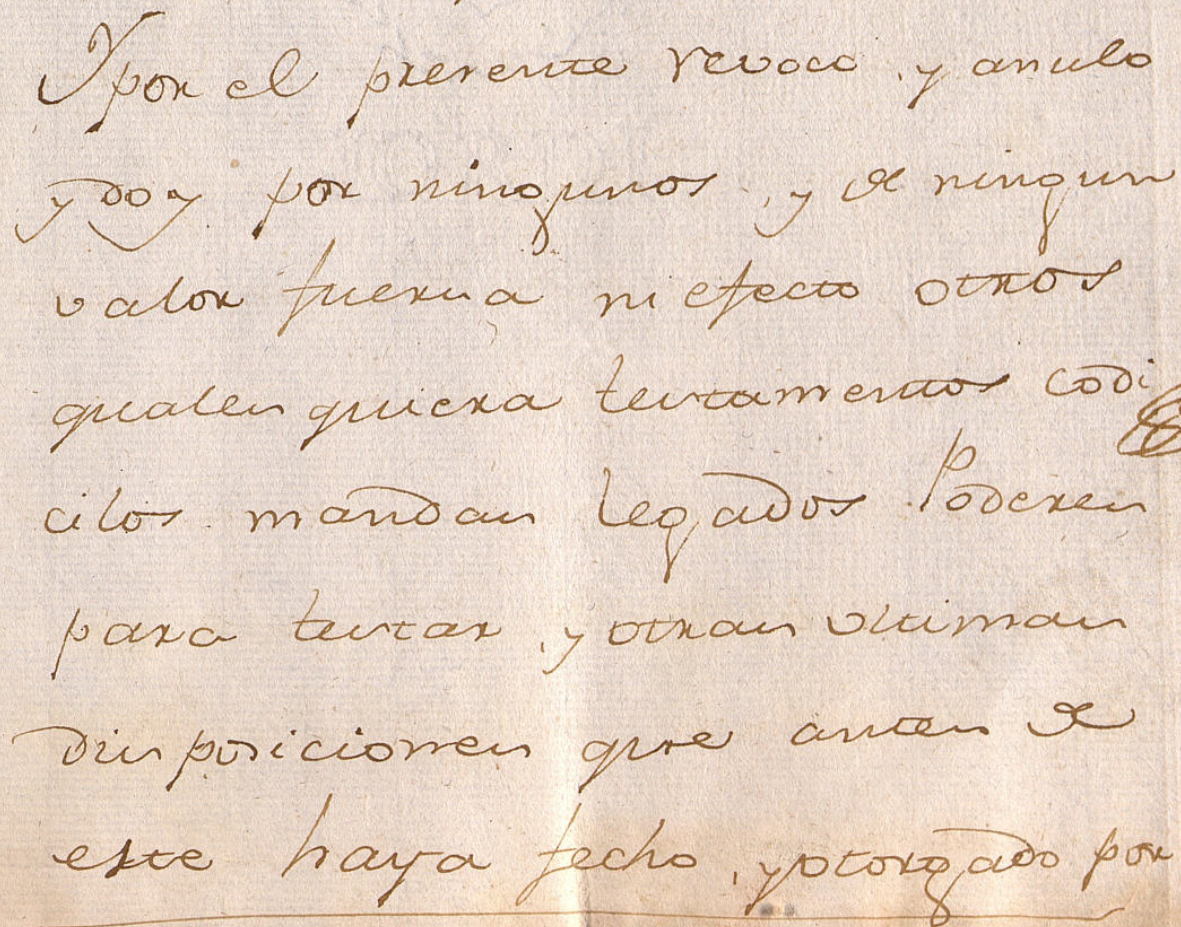 Y por el presente revoco, y anulo
y doy por ningunos, y de ningun
valor fuerza ni efecto otros
qualesquiera testamentos codi
cilos mandas legados Poderes
para testar, y otras ultimas
disposiciones que antes de
este haya fecho, y otorgado por